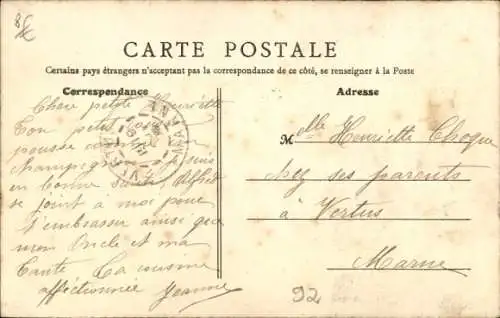 CARTE POSTALE
Certains pays étrangers n'acceptant pas la correspondance de ce côté, se renseigner à la Poste
Correspondance
Adresse
Chère petite Henriette
Ton petit
pousse comme un
champignon je suis
en bonne santé, Alfred
se joint a moi pour
t'embrasser ainsi que
mon Oncle et ma
Tante. Ta cousine
affectionnée Jeanne
Melle Henriette Choque
chez ses parents
à Vertus
Marne
92